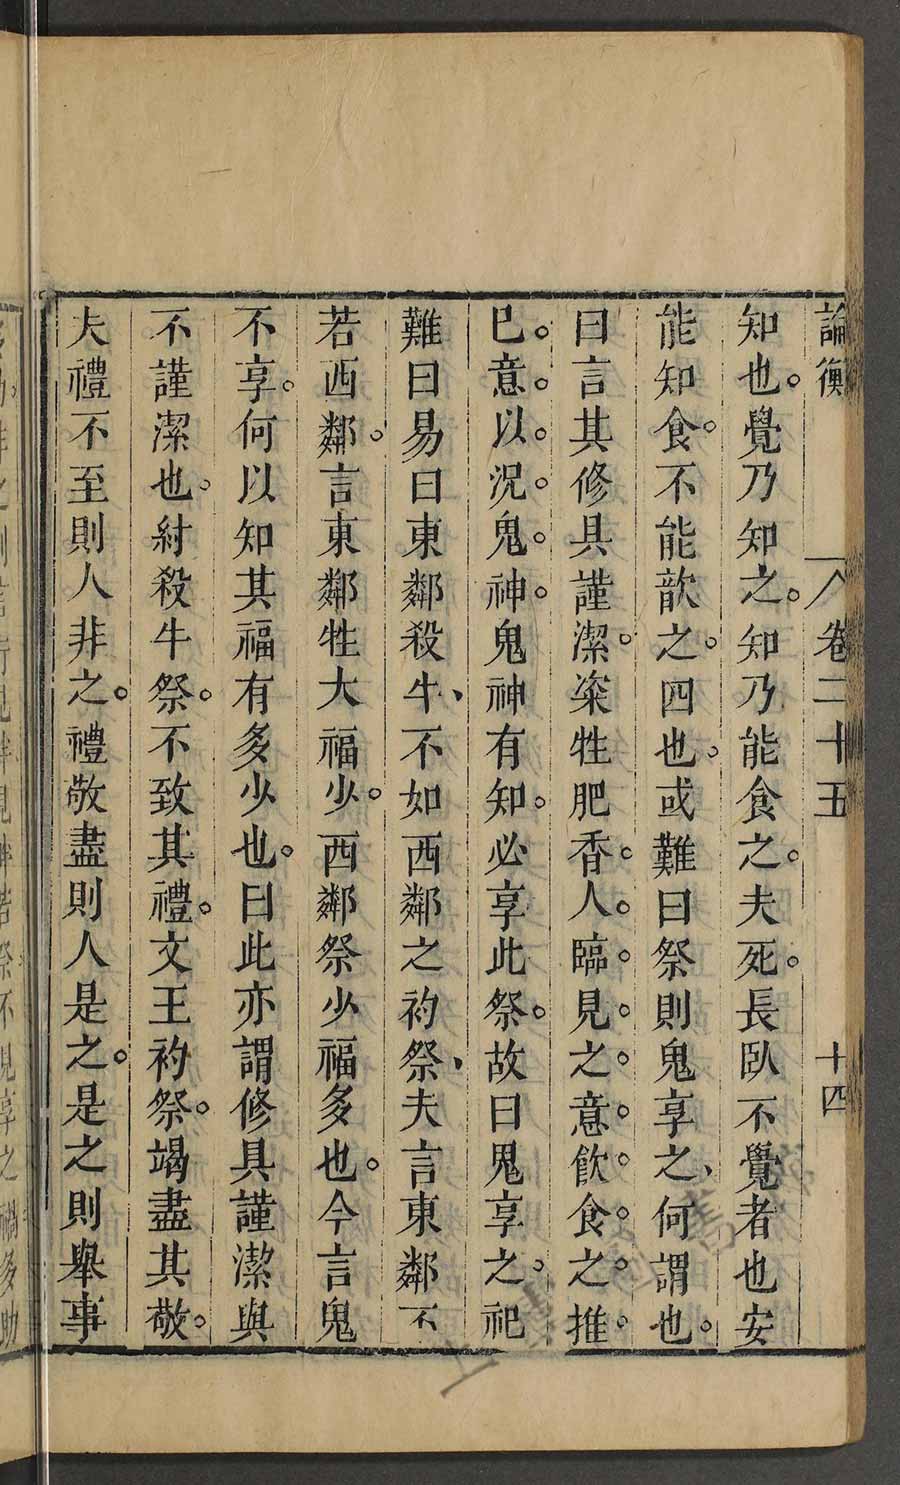 論衡 卷二十五 十四
知也。覺乃知之。知乃能食之。夫死。長臥不覺者也安
能知食。不能歆之。四也。或難曰祭則鬼享之、何謂也。
曰言其修具謹潔。粢牲肥香。人。臨。見。之。意。飲。食。之。推。
已。意。以。況。鬼。神。鬼神有知。必享此祭。故曰鬼享之。祀
難曰易曰東鄰殺牛、不如西鄰之礿祭、夫言東鄰不
若西鄰。言東鄰牲大福少。西鄰祭少福多也。今言鬼
不享。何以知其福有多少也。曰此亦謂修具謹潔與
不謹潔也。紂殺牛祭。不致其禮。文王礿祭。竭盡其敬。
夫禮不至則人非之。禮敬盡則人是之。是之則舉事